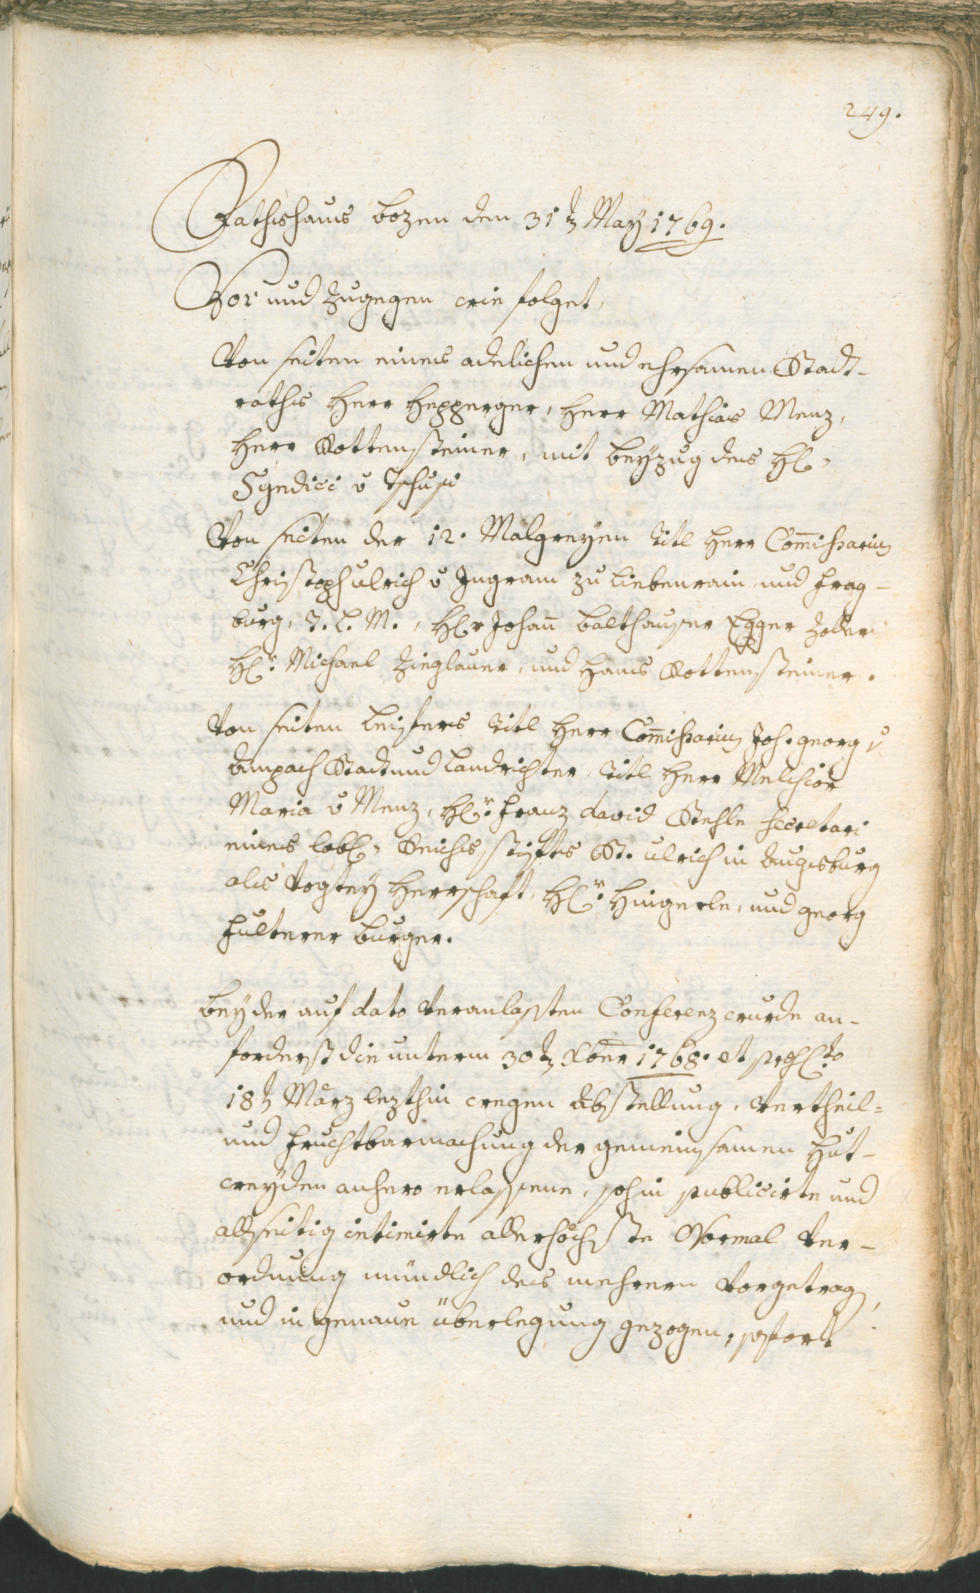 249.
Rathshaus bozen den 31ten May 1769.
Vor und zugegen wie folget,
Von seiten eines adelichen und ehrsamen Stadt-
raths Herr Hepperger, Herr Mathias Menz,
Herr Rottensteiner, mit beyzug des H:
Syndici v Tschusi
Von seiten der 12. Malgreyen Titl Herr Commissarius
Christoph ulrich v Ingram zu Liebenrain und frag-
burg, T. L. M., H:r Johann balthauser Egger Zoller
H:r Michael Zieglauer, und Hans Rottensteiner.
Von seiten Leyfers Titl Herr Commissarius Joh. georg v
Stadt und Landrichter, Titl Herr Melchior
Maria v Menz, H:r franz david Stehle secretari
eines lobl: Reichs styfts St. ulrich in Augsburg
als Vogtey Herrschaft, H:r Hingerle, und georg
fulterer burger.
bey der auf dato Veranlassten Conferenz wurde an-
forderst die unterm 30ten Xber 1768. et
18ten März lezthin wegen Abstellung, Vertheil-
und fruchtbarmachung der gemeinsamen Hut-
weyden anhero erlassene, sohin publicirte und
allseitig intimirte allerhöchste Normal Ver-
ordnung mündlich des mehrern Vorgetragen,
und in genaue überlegung gezogen, sofort